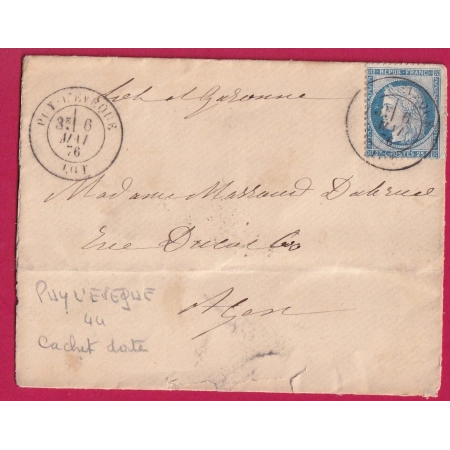 Lot et Garonne
PUY-L'EVEQUE
3E 6
MAI
76
LOT
REPUB. FRANC.
25 C POSTES 25 C
Madame
Rue Ducos 60
Agen
PUY L'EVEQUE
44
Cachet date